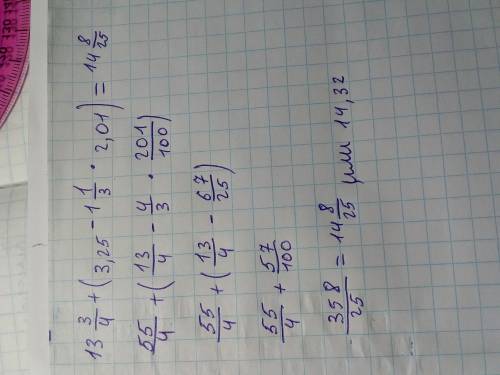 13 3/4 + (3,25 - 1 1/3 · 2,01) = 14 8/25
55/4 + (13/4 - 4/3 · 201/100)
55/4 + (13/4 - 67/25)
55/4 + 57/100
358/25 = 14 8/25 или 14,32